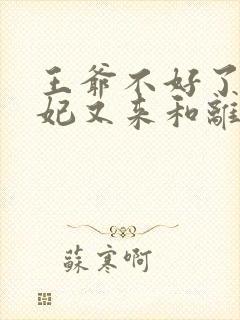 王爺不好了
妃又来和離
蘇寒啊